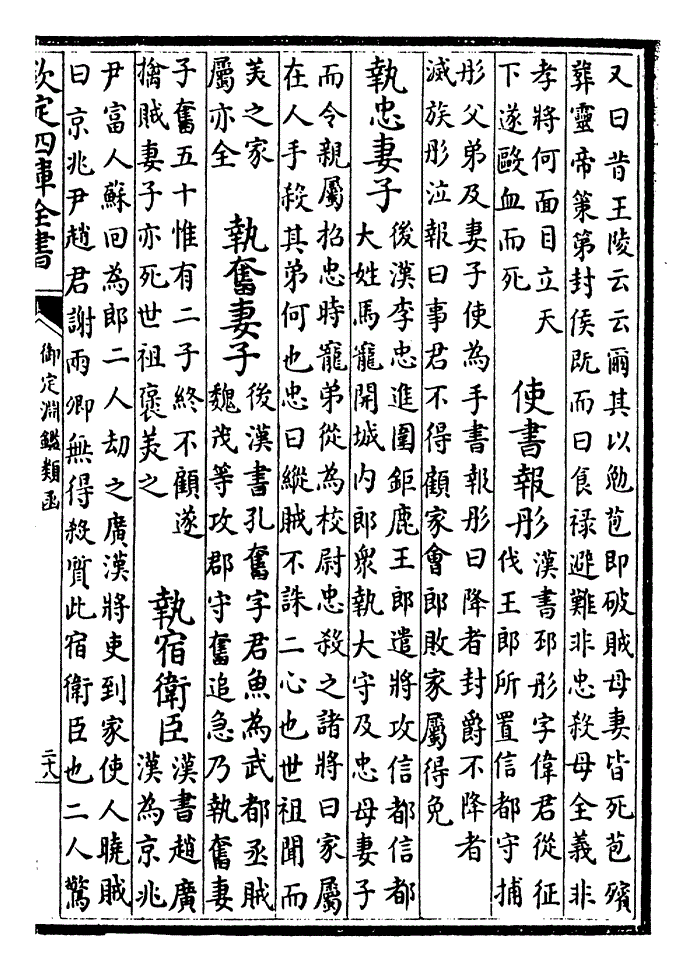 又曰昔王陵云云爾其以勉苞即破賊母妻皆死苞殯
葬靈帝策第封侯既而曰食禄避難非忠殺母全義非
孝將何面目立天
下遂毆血而死
使書報彤
漢書邳彤字偉君從征
伐王郎所置信都守捕
彤父弟及妻子使為手書報彤曰降者封爵不降者
滅族彤泣報曰事君不得顧家會郎敗家屬得免
執忠妻子
後漢李忠進圍鉅鹿王郎遣將攻信都信都
大姓馬寵開城内郎衆執大守及忠母妻子
而令親屬招忠時寵弟從為校尉忠殺之諸將曰家屬
在人手殺其弟何也忠曰縱賊不誅二心也世祖聞而
美之家
屬亦全
執奮妻子
後漢書孔奮字君魚為武都丞賊
魏茂等攻郡守奮追急乃執奮妻
子奮五十惟有二子終不顧遂
擒賊妻子亦死世祖褒美之
執宿衛臣
漢書趙廣
漢為京兆
尹富人蘇回為郎二人刧之廣漢將吏到家使人曉賊
曰京兆尹趙君謝兩卿無得殺質此宿衛臣也二人驚
欽定四庫全書
御定淵鑑類函
二十八